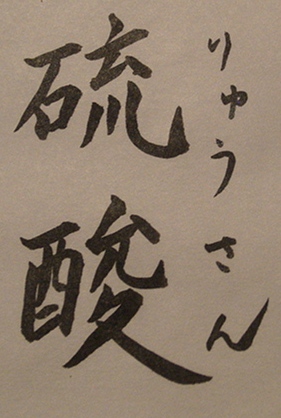 硫酸
りゅうさん